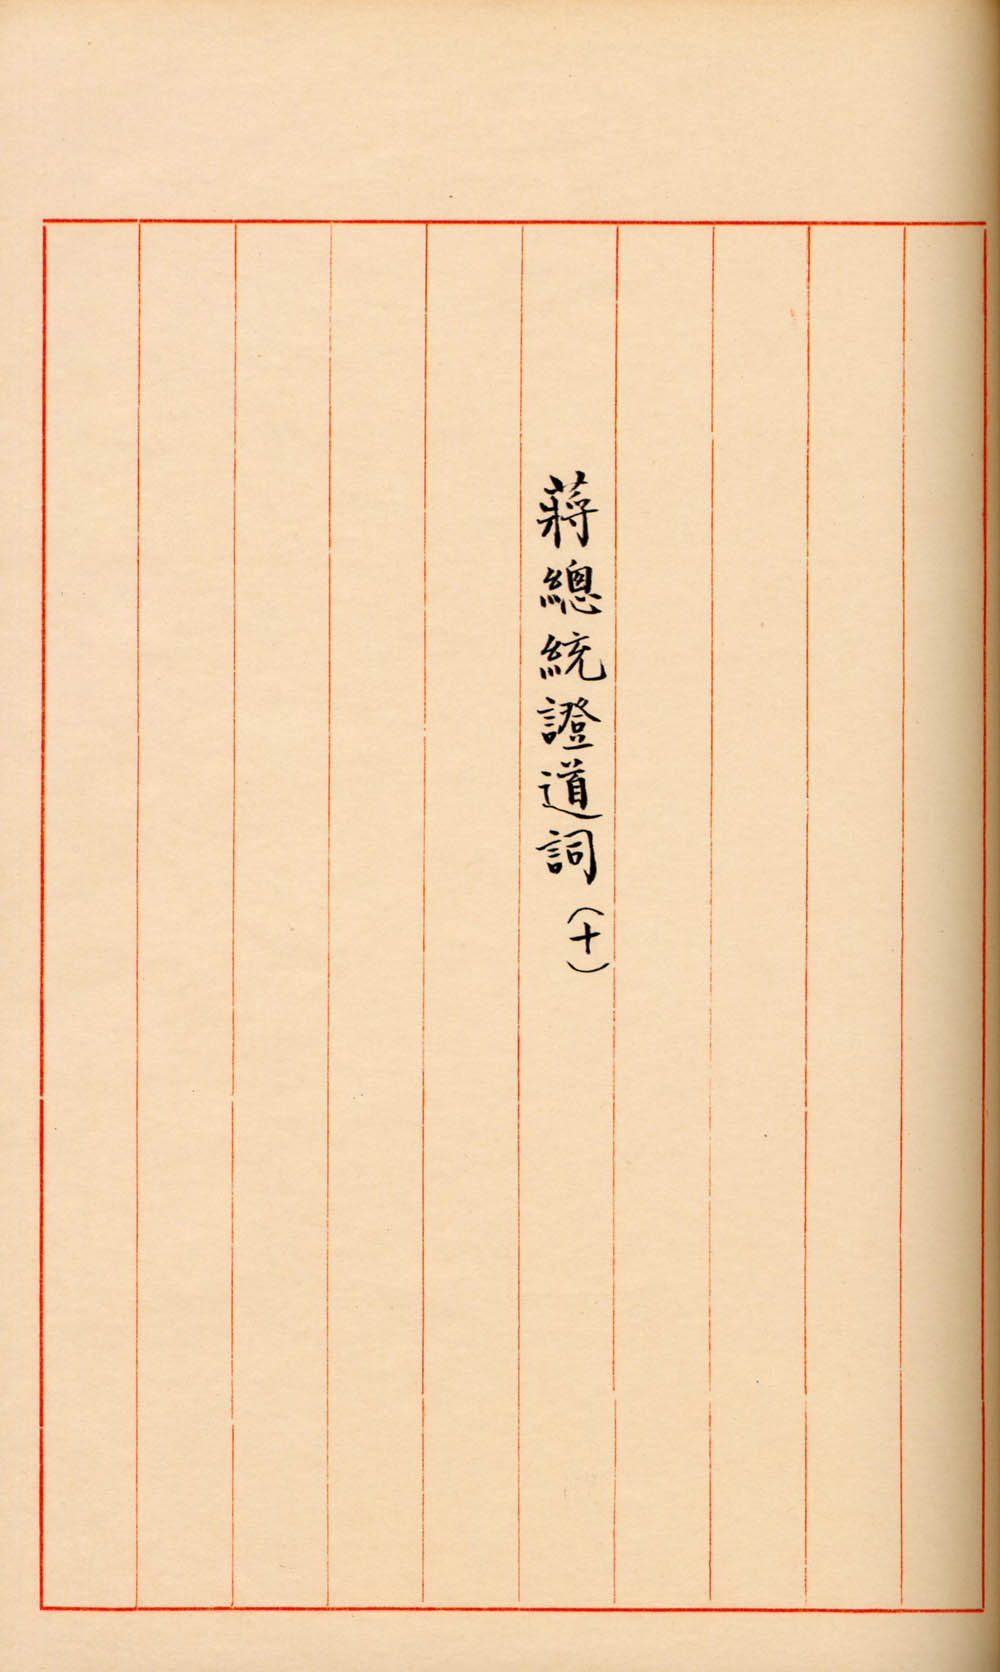 蔣總統證道詞(十)